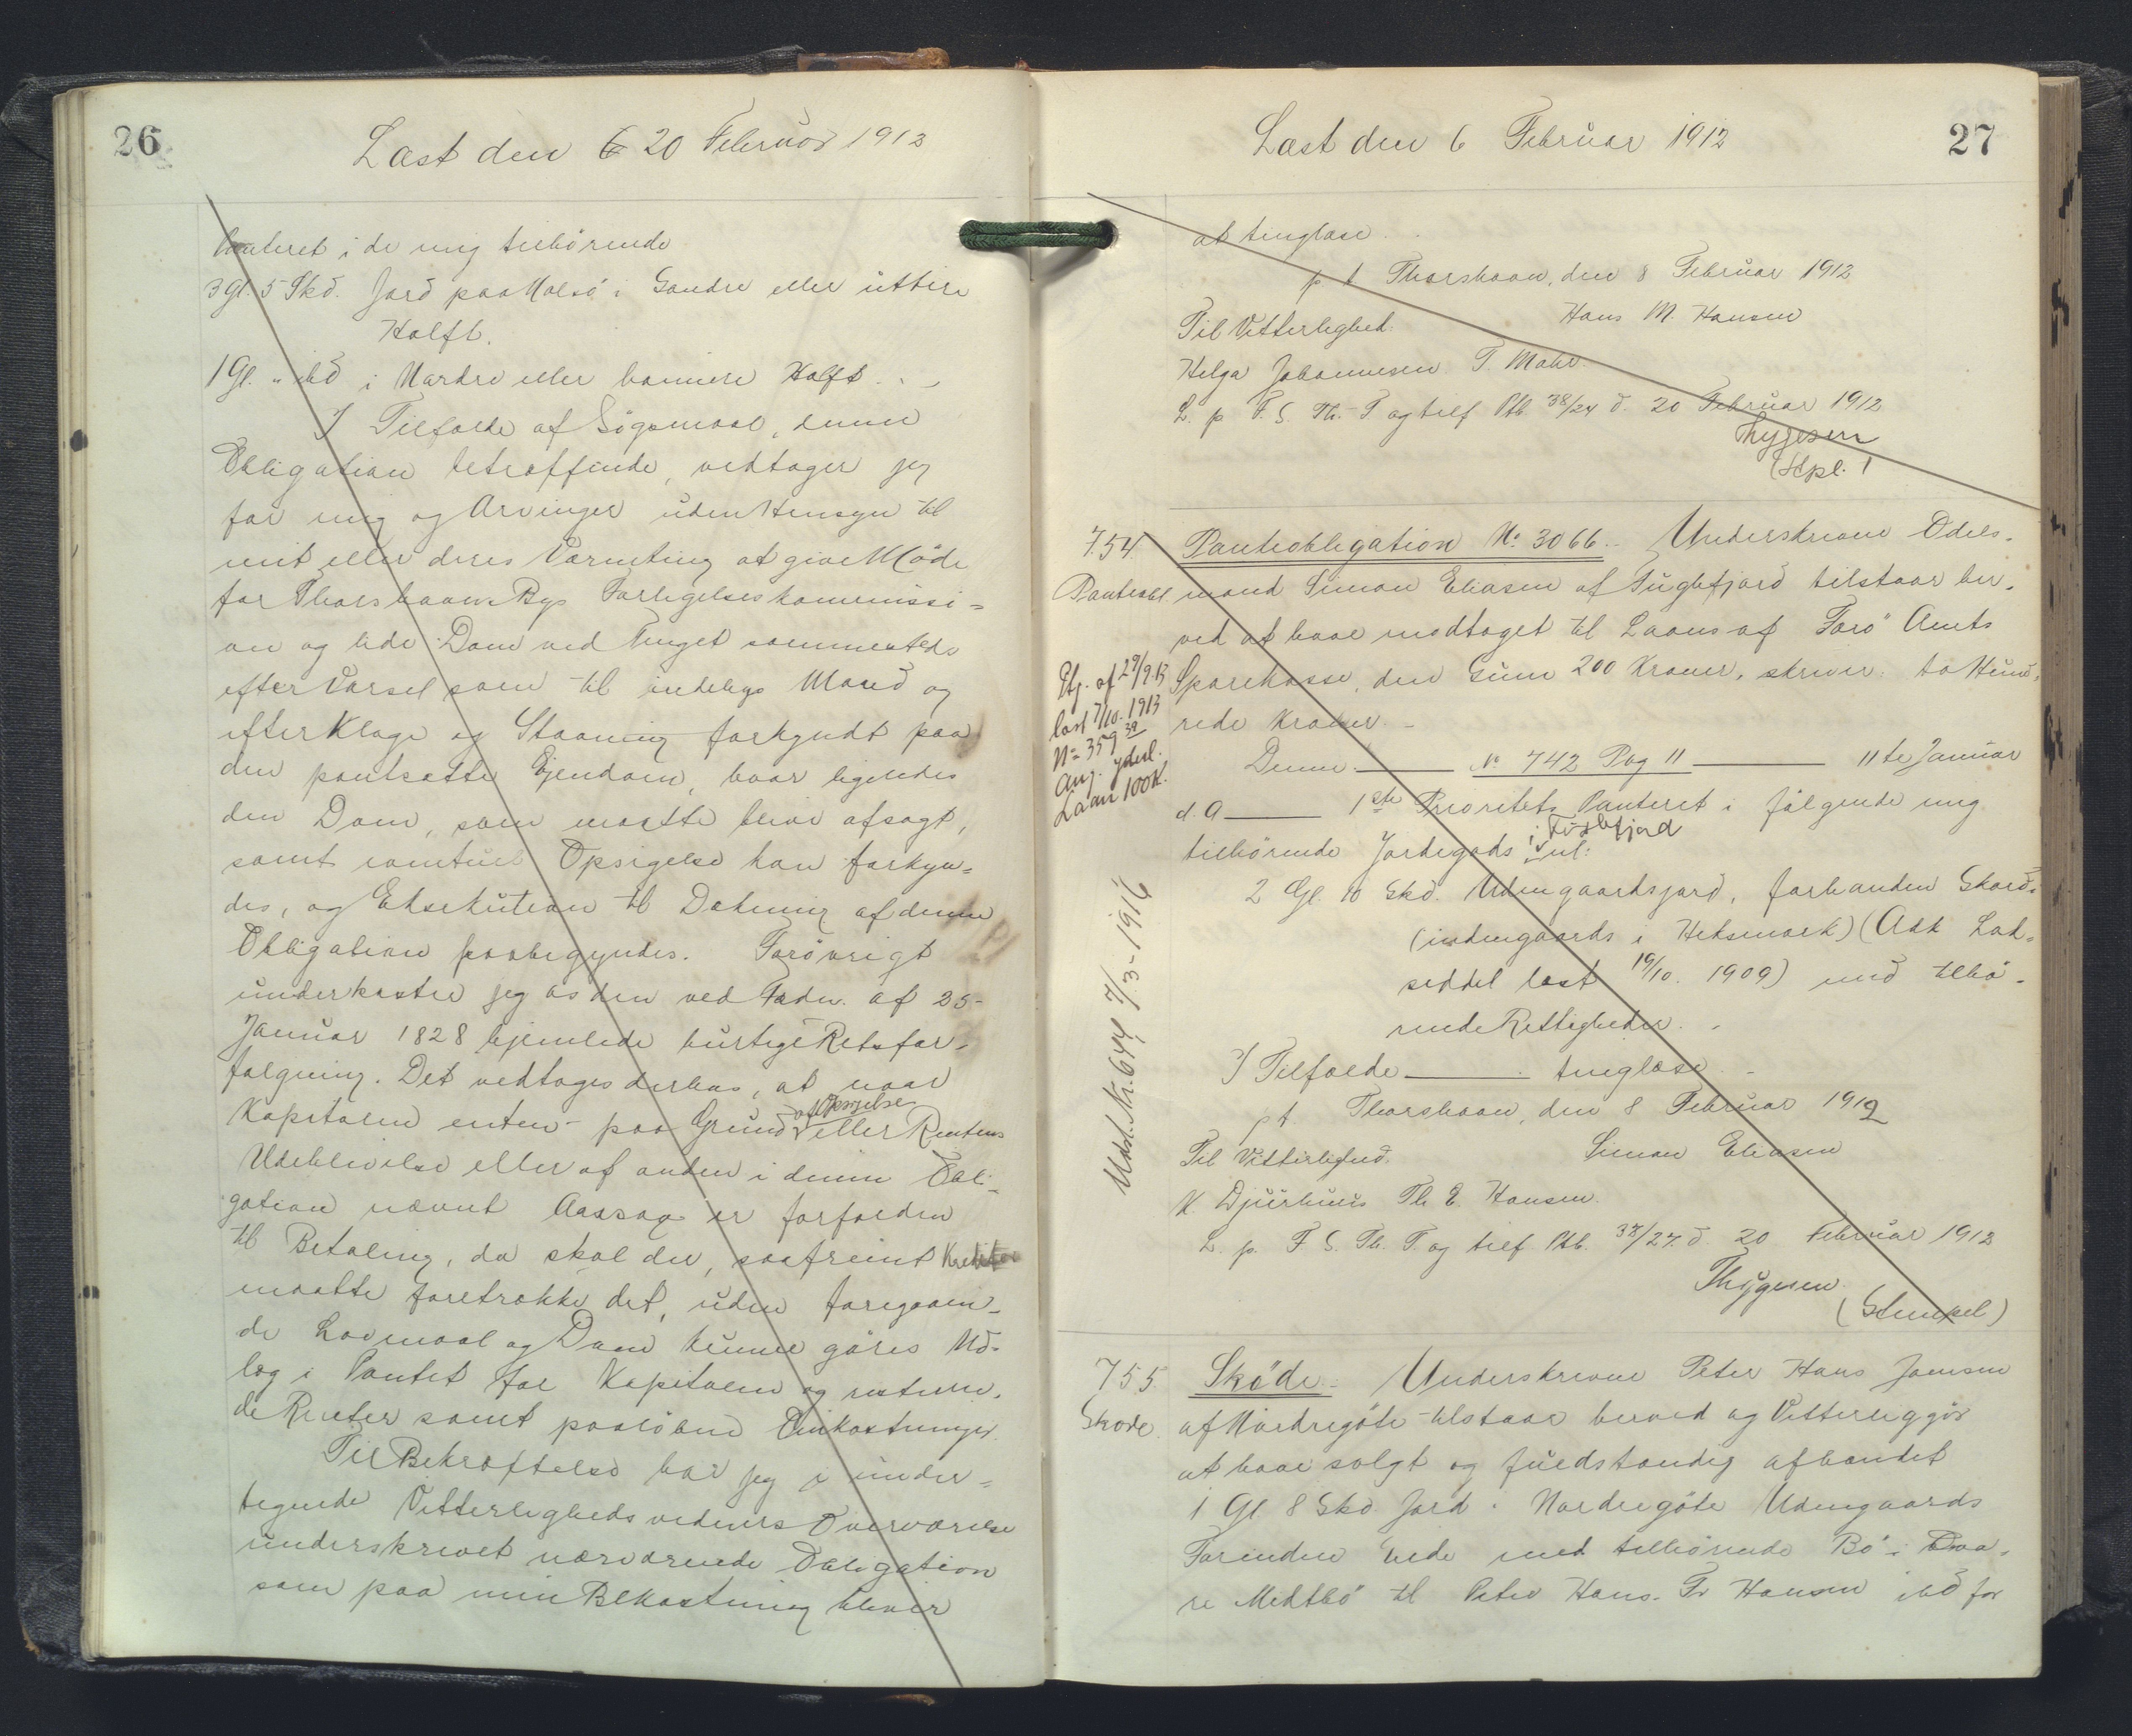 26
Læst den 6 20 Februar 1912
Panteret i de mig tilhörende
3 Gl. 5 Skd. Jord paa Nolsö i Søndre eller üttire
Halft.
1 Gl. " ibd i Nordre eller hannere Halft.
I Tilfælde af Sögsmaal, denne
Obligation betræffende, vedtager jeg
for mig og Arvinger uden Hensyn til
mit eller deres Værneting at give Möde
for Thorshavns Bys Forligelseskommissi=
on og lide Dom ved Tinget sammesteds
efter Varsel som til indebygs Mand og
efter Klage og Stævning forkyndt paa
den pantsatte Ejendom, hvor ligeledes
den Dom, som maatte blive afsagt,
samt eventuel Opsigelse kan forkyn=
des, og Eksekution til Dækning af denne
Obligation paabegyndes. Forövrigt
underkaster jeg os den ved Frdn. af 25-
Januar 1828 hjemlede hurtige Retsfor-
fölgning. Det vedtages derhos, at naar
Kapitalen enten paa Grund af Opsigelse eller Rentens
Udeblivelse eller af anden i denne Obli-
gation nævnt Aarsag er forfalden
til Betaling, da skal der, saafremt Kreditor
maatte foretrække det, uden foregaaen-
de Lovmaal og Dom kunne göres Ud-
læg i Pantet for Kapitalen og resteren-
de Renter samt paalöbne Omkostninger.
Til Bekræftelse har jeg i under-
tegnede Vitterlighedsvidners Overværelse
underskrevet nærværende Obligation
som paa min Bekostning bliver
27
Læst den 6 Februar 1912
at tinglæse.
p t Thorshavn, den 8 Februar 1912
Til Vitterlighed: Hans M. Hansen
Helga Johannesen T. Mohr.
L. p F. S. Th. T og tilf Ptb 38/24 d. 20 Februar 1912
Thygesen
(Stpl.)
754. Panteobligation No 3066. Underskrevne Odels-
Panteobl. mand Simon Eliasen af Fuglefjord tilstaar her-
ved at have modtaget til Laans af Færö Amts
Sparekasse, den Sum 200 Kroner, skriver: to Hund-
rede Kroner.
Ptg. af 29/9.13
læst 7/10. 1913
No 359
ang. yderl.
Laan 100 K.
Denne ——— No 742 Pag 11 ——— 11te Januar
d. A ——— 1ste Prioritets Panteret i fölgende mig
tilhörende Jordegods i Fuglefjord nl:
2 Gl. 10 Skd. Udengaardsjord, forhanden Skard-
(indengaards i Heksmark) (Adk Lod-
seddel læst 19/10. 1909) med tilhö-
rende Rettigheder.
I Tilfælde ——— tinglæse.
p t Thorshavn, den 8 Februar 1912
Til Vitterlighed. Simon Eliasen
K. Djurhuus Th E. Hansen.
L. p. F S. Th. T. og tilf. Ptb. 38/27. d. 20 Februar 1912
Thygesen
(Stempel)
Udsl. Nr. 644 7/3-1916
755. Sköde. Underskrevne Peter Hans Joensen
Sköde. af Nordregöte tilstaar herved og Vitterliggör
at have solgt og fuldstændig afhændet
1 Gl 8 Skd Jord i Nordregöte Udengaards
Forinden hede med tilhörende Bö i
re Midtbö til Peter Hans Fr Hansen ibd for